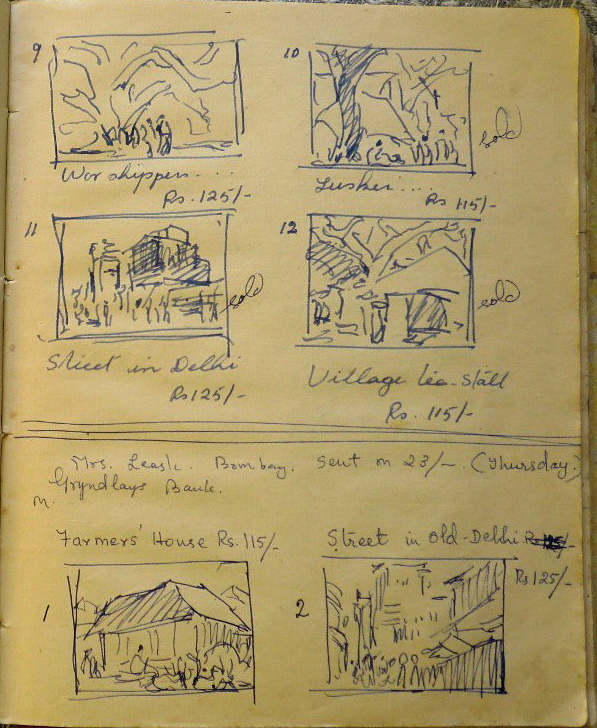 9
Worshippers....
Rs.125/-
10
sold
Rs 115/-
11
sold
Street in Delhi
Rs125/-
12
sold
Village tea-stall
Rs. 115/-
Mrs. Leask. Bombay. Sent on 23/-. (Thursday.)
Gryndlays Bank.
Farmers' House Rs.115/-
1
Street in Old-Delhi
Rs125/-
2